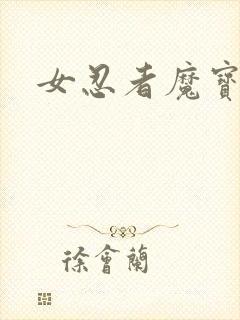 女忍者魔寶
徐會蘭